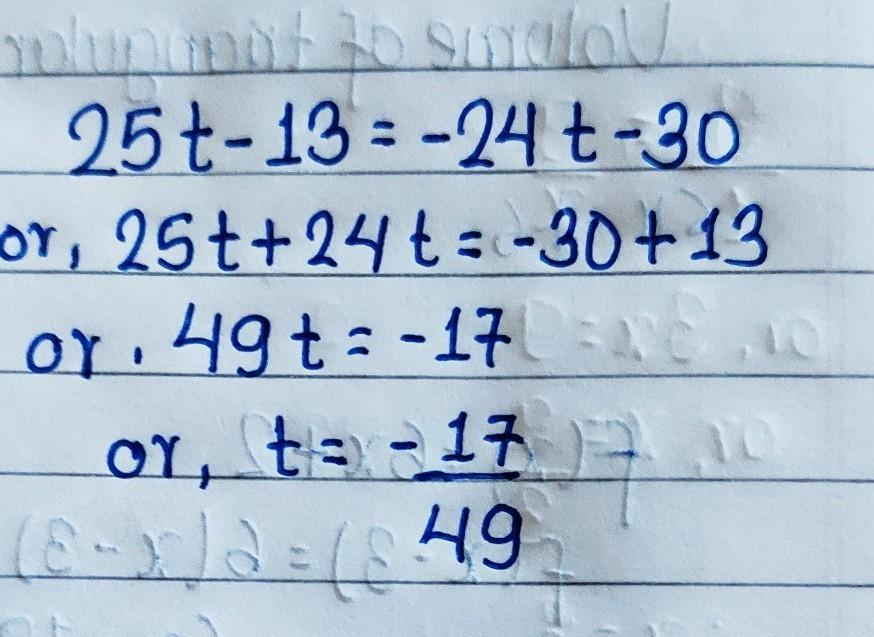 25t-13=-24t-30
or, 25t+24t=-30+13
or, 49t=-17
or, t=-17/49